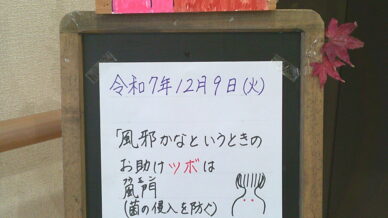 令和7年12月9日(火)
「風邪かなというときの
お助けツボは
フウモン
風門
(菌の侵入を防ぐ)